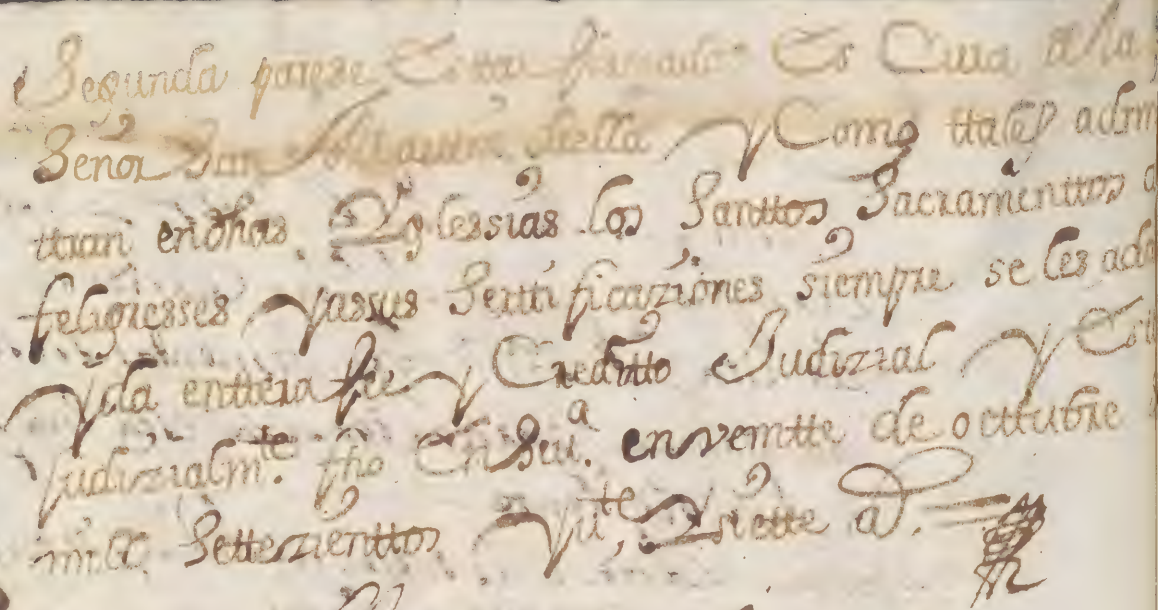 Segunda pareze Estar firmado Es Cura de la
Señor San Sebastian della y Como ttal adm
ttran en dhas Yglessias los Santtos Sacramenttos a
feligresses y assus Serttificaziones siempre se les ad
y da enttera fee y Creditto Judizial y Est
judizialmte fho En Seua en veintte de octtubre
mill Settezienttos Vte y siette as